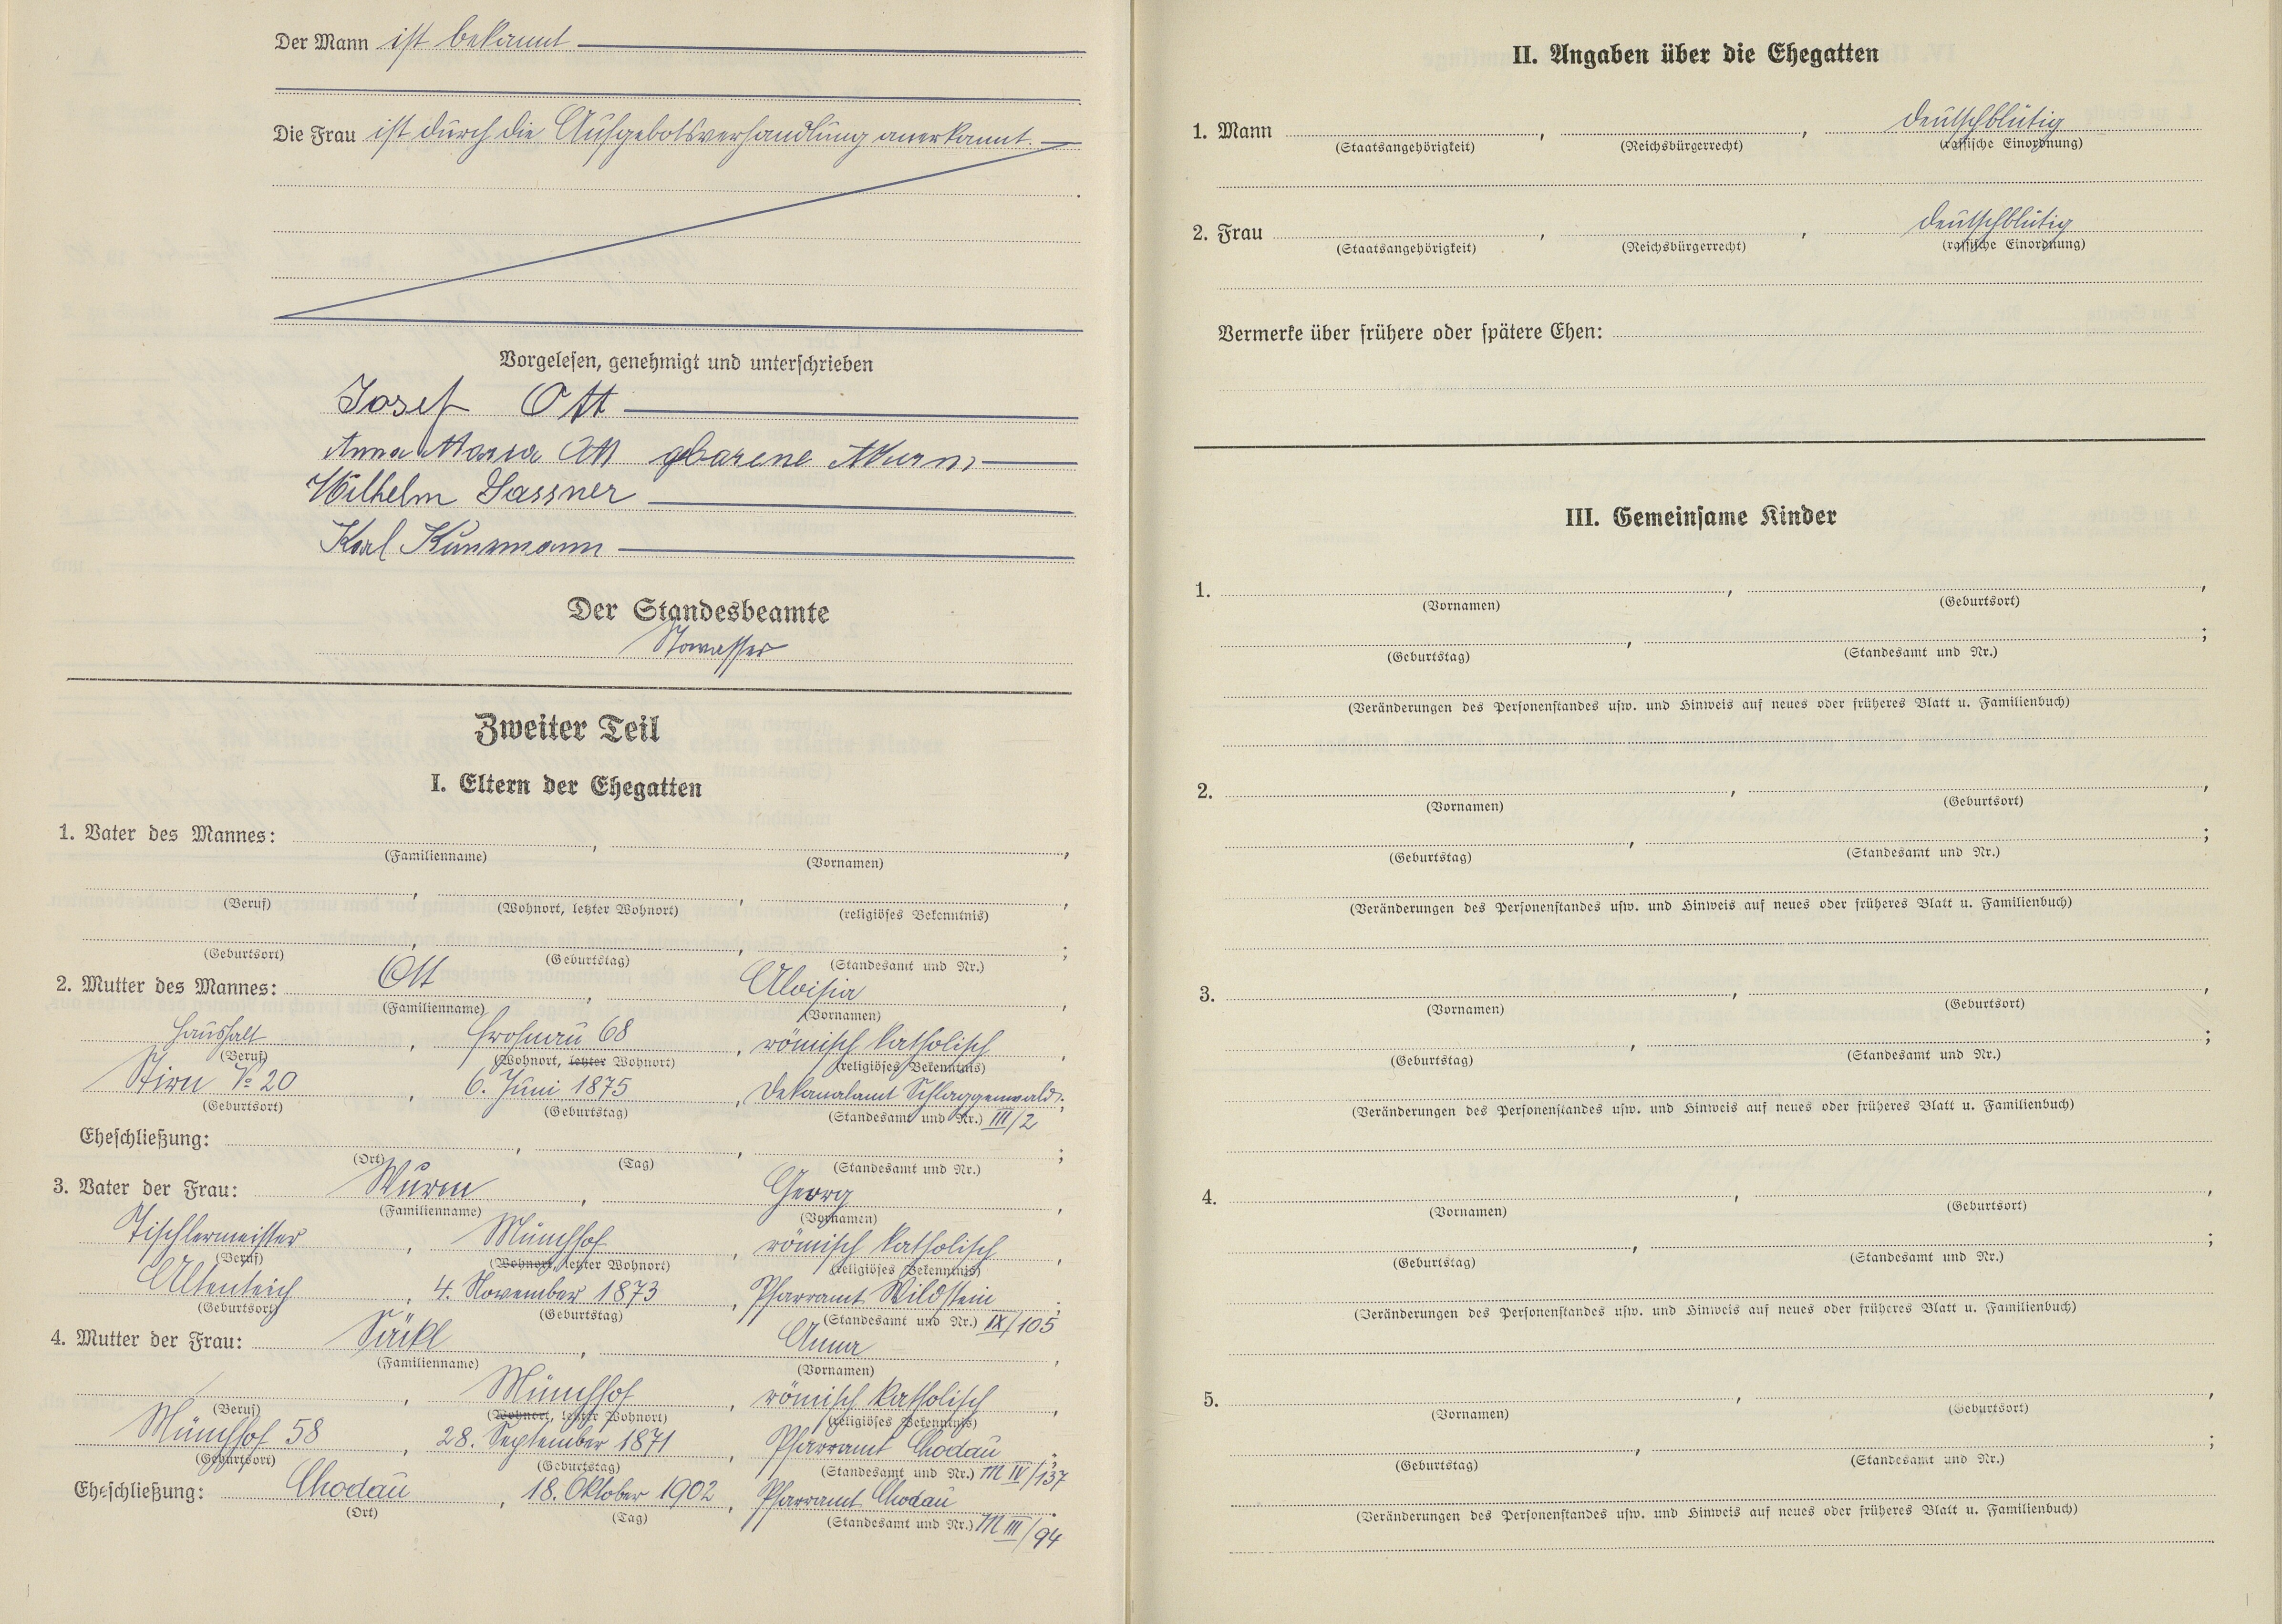 Der Mann ist bekannt
Die Frau ist durch die Aufgebotsverhandlung anerkannt.
Vorgelesen, genehmigt und unterschrieben
Josef Ott
Anna Maria Ott geborene Wurm
Wilhelm Sassner
Karl Kunzmann
Der Standesbeamte
Stowasser
Zweiter Teil
I. Eltern der Ehegatten
1. Vater des Mannes: , ,
(Familienname) (Vornamen)
, , ,
(Beruf) (Wohnort, letzter Wohnort) (religiöses Bekenntnis)
, , ;
(Geburtsort) (Geburtstag) (Standesamt und Nr.)
2. Mutter des Mannes: Ott , Aloisia ,
(Familienname) (Vornamen)
Haushalt , Frohnau 68 , römisch katholisch ,
(Beruf) (Wohnort, letzter Wohnort) (religiöses Bekenntnis)
Stirn No 20 , 6. Juni 1875 , Dekanalamt Schlaggenwald ;
(Geburtsort) (Geburtstag) (Standesamt und Nr.) III/2
Eheschließung: , , ;
(Ort) (Tag) (Standesamt und Nr.)
3. Vater der Frau: Wurm , Georg ,
(Familienname) (Vornamen)
Tischlermeister , Münchhof , römisch katholisch ,
(Beruf) (Wohnort, letzter Wohnort) (religiöses Bekenntnis)
Altenteich , 4. November 1873 , Pfarramt Wildstein ;
(Geburtsort) (Geburtstag) (Standesamt und Nr.) IX/105
4. Mutter der Frau: Säckl , Anna ,
(Familienname) (Vornamen)
, Münchhof , römisch katholisch ,
(Beruf) (Wohnort, letzter Wohnort) (religiöses Bekenntnis)
Münchhof 58 , 28. September 1871 , Pfarramt Chodau ;
(Geburtsort) (Geburtstag) (Standesamt und Nr.) M IV/137
Eheschließung: Chodau , 18. Oktober 1902 , Pfarramt Chodau .
(Ort) (Tag) (Standesamt und Nr.) M III/94
II. Angaben über die Ehegatten
1. Mann , , deutschblütig
(Staatsangehörigkeit) (Reichsbürgerrecht) (rassische Einordnung)
2. Frau , , deutschblütig
(Staatsangehörigkeit) (Reichsbürgerrecht) (rassische Einordnung)
Vermerke über frühere oder spätere Ehen:
III. Gemeinsame Kinder
1. , ,
(Vornamen) (Geburtsort)
, ;
(Geburtstag) (Standesamt und Nr.)
(Veränderungen des Personenstandes usw. und Hinweis auf neues oder früheres Blatt u. Familienbuch)
2. , ,
(Vornamen) (Geburtsort)
, ;
(Geburtstag) (Standesamt und Nr.)
(Veränderungen des Personenstandes usw. und Hinweis auf neues oder früheres Blatt u. Familienbuch)
3. , ,
(Vornamen) (Geburtsort)
, ;
(Geburtstag) (Standesamt und Nr.)
(Veränderungen des Personenstandes usw. und Hinweis auf neues oder früheres Blatt u. Familienbuch)
4. , ,
(Vornamen) (Geburtsort)
, ;
(Geburtstag) (Standesamt und Nr.)
(Veränderungen des Personenstandes usw. und Hinweis auf neues oder früheres Blatt u. Familienbuch)
5. , ,
(Vornamen) (Geburtsort)
, ;
(Geburtstag) (Standesamt und Nr.)
(Veränderungen des Personenstandes usw. und Hinweis auf neues oder früheres Blatt u. Familienbuch)